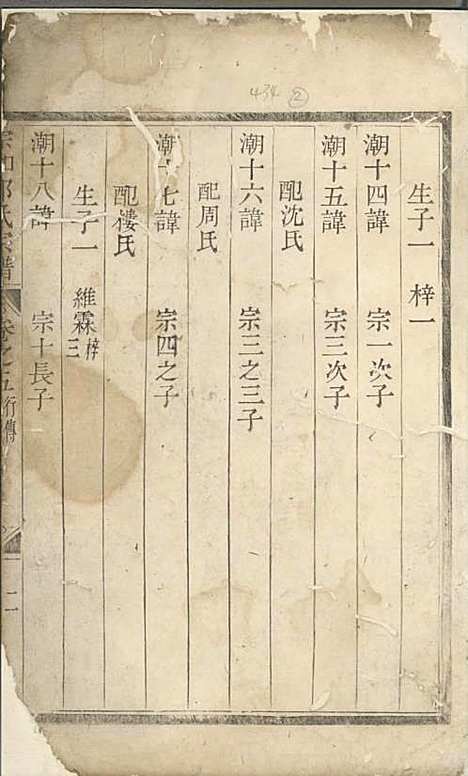 434 2
生子一 梓一
潮十四諱 宗一次子
潮十五諱 宗三次子
配沈氏
潮十六諱 宗三之三子
配周氏
潮十七諱 宗四之子
配褸氏
生子一 維霖梓三
潮十八諱 宗十長子
氏宗譜 卷之五行傳 二